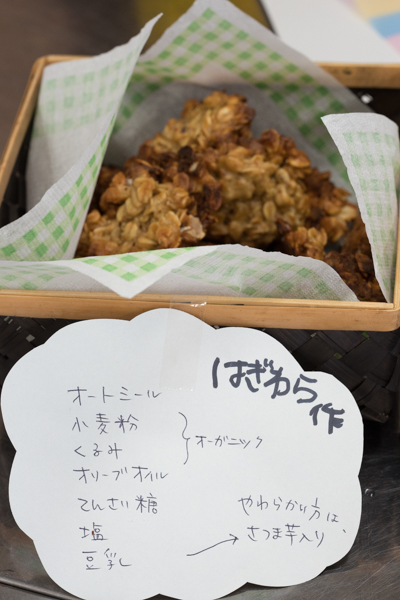 はぎわら
作
オートミール
小麦粉
くるみ
オーガニック
オリーブオイル
てんさい糖
塩
豆乳
やわらかい方は、
さつま芋入り